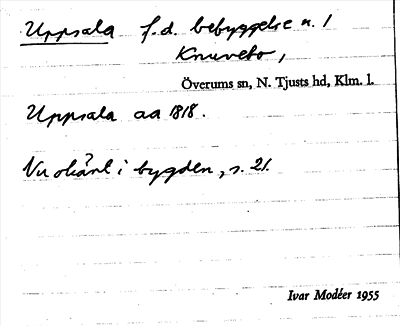 Uppsala f.d. bebyggelse u. /
Knuvebo,
Överums sn, N. Tjusts hd, Klm. l.
Uppsala aa 1818.
Nu okänt i bygden, s. 21.
Ivar Modéer 1955